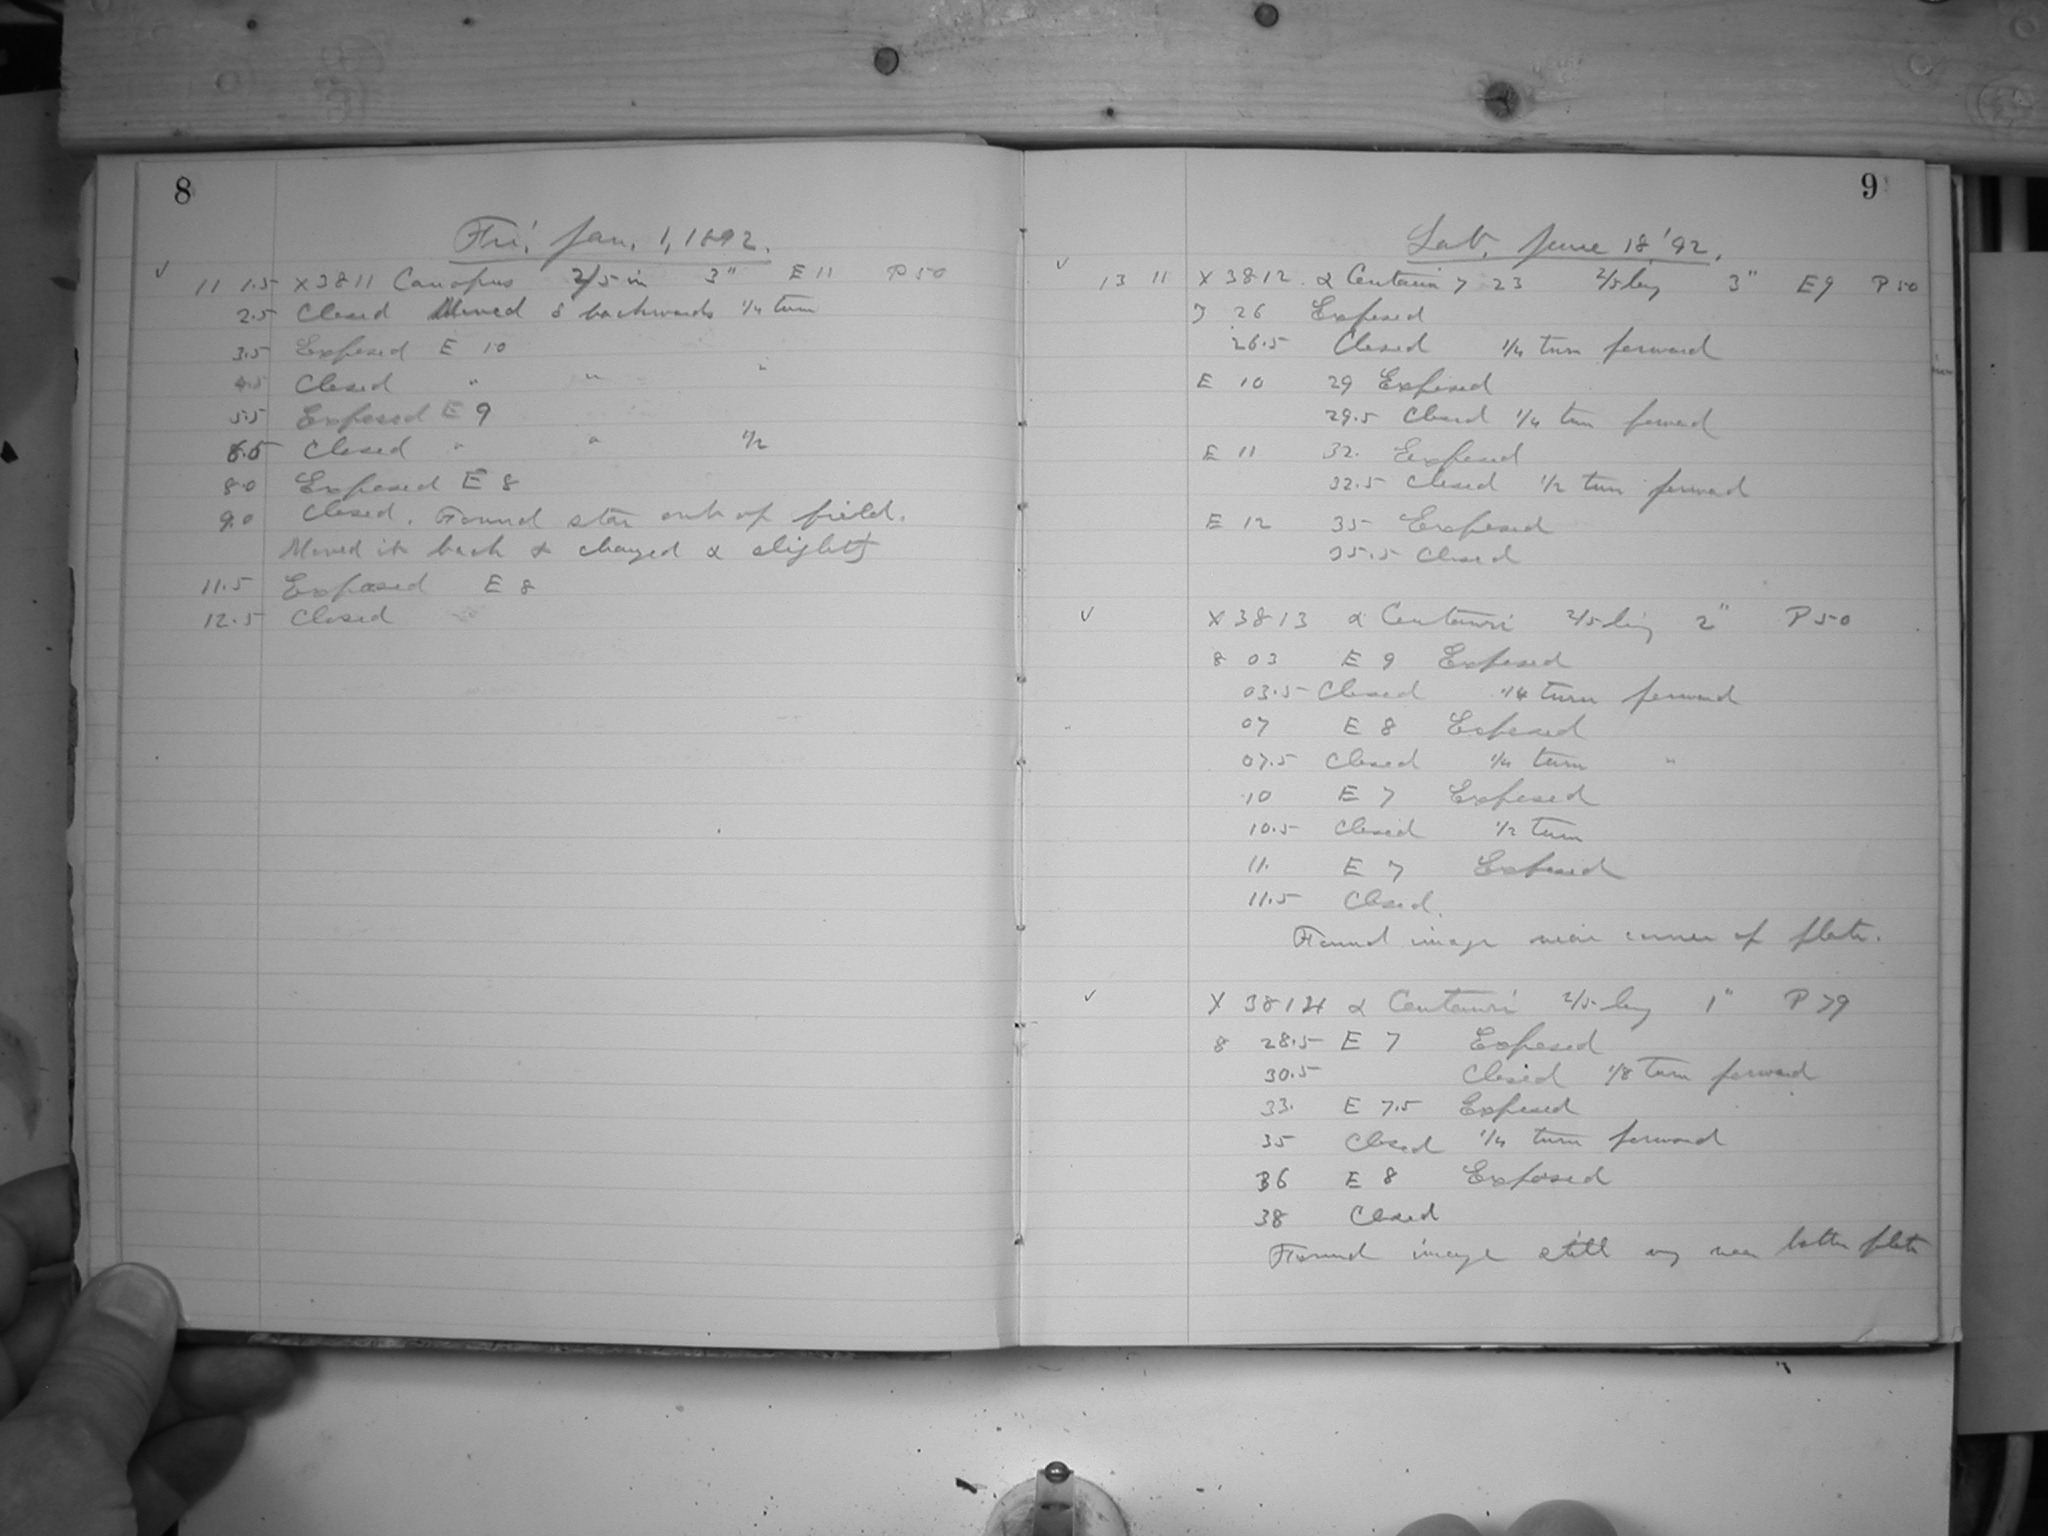 8
Fri. Jan. 1, 1892.
✓ 11 1.5 X 3811 Canopus 2/5 in 3" E 11 P 50
2.5 Closed Moved δ backwards 1/4 turn
3.5 Exposed E 10
4.5 Closed " " "
5.5 Exposed E 9
6.5 Closed " " 1/2
8.0 Exposed E 8
9.0 Closed. Found star out of field.
Moved it back & changed α slightly
11.5 Exposed E 8
12.5 Closed
9
Sat. June 18, '92.
✓ 13 11 X 3812 α Centauri 7 23 2/5 3" E 9 P 50
7 26 Exposed
26.5 Closed 1/4 turn forward
E 10 29 Exposed
29.5 Closed 1/4 turn forward
E 11 32. Exposed
32.5 Closed 1/2 turn forward
E 12 35 Exposed
35.5 Closed
✓ X 3813 α Centauri 2/5 2" P 50
8 03 E 9 Exposed
03.5 Closed 1/4 turn forward
07 E 8 Exposed
07.5 Closed 1/4 turn "
10 E 7 Exposed
10.5 Closed 1/2 turn
11. E 7 Exposed
11.5 Closed.
Found image near corner of plate.
✓ X 3814 α Centauri 2/5 1" P 79
8 28.5 E 7 Exposed
30.5 Closed 1/8 turn forward
33. E 7.5 Exposed
35 Closed 1/4 turn forward
36 E 8 Exposed
38 Closed
Found image still near plate